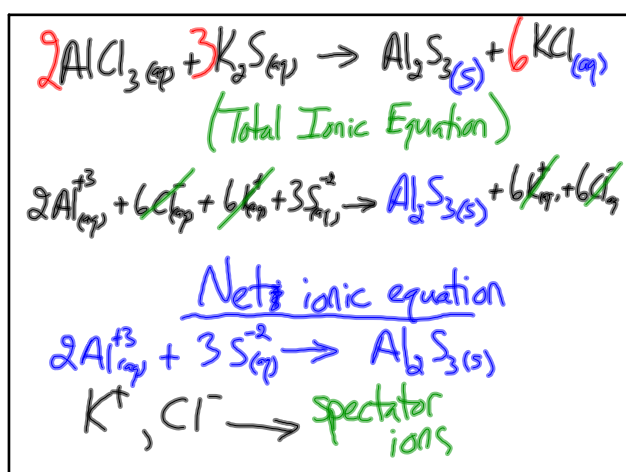 2AlCl₃(aq) + 3K₂S(aq) → Al₂S₃(s) + 6KCl(aq)
(Total Ionic Equation)
2Al⁺³(aq) + 6Cl⁻(aq) + 6K⁺(aq) + 3S⁻²(aq) → Al₂S₃(s) + 6K⁺(aq) + 6Cl⁻aq
Net ionic equation
2Al⁺³(aq) + 3S⁻²(aq) → Al₂S₃(s)
K⁺, Cl⁻ → spectator
ions